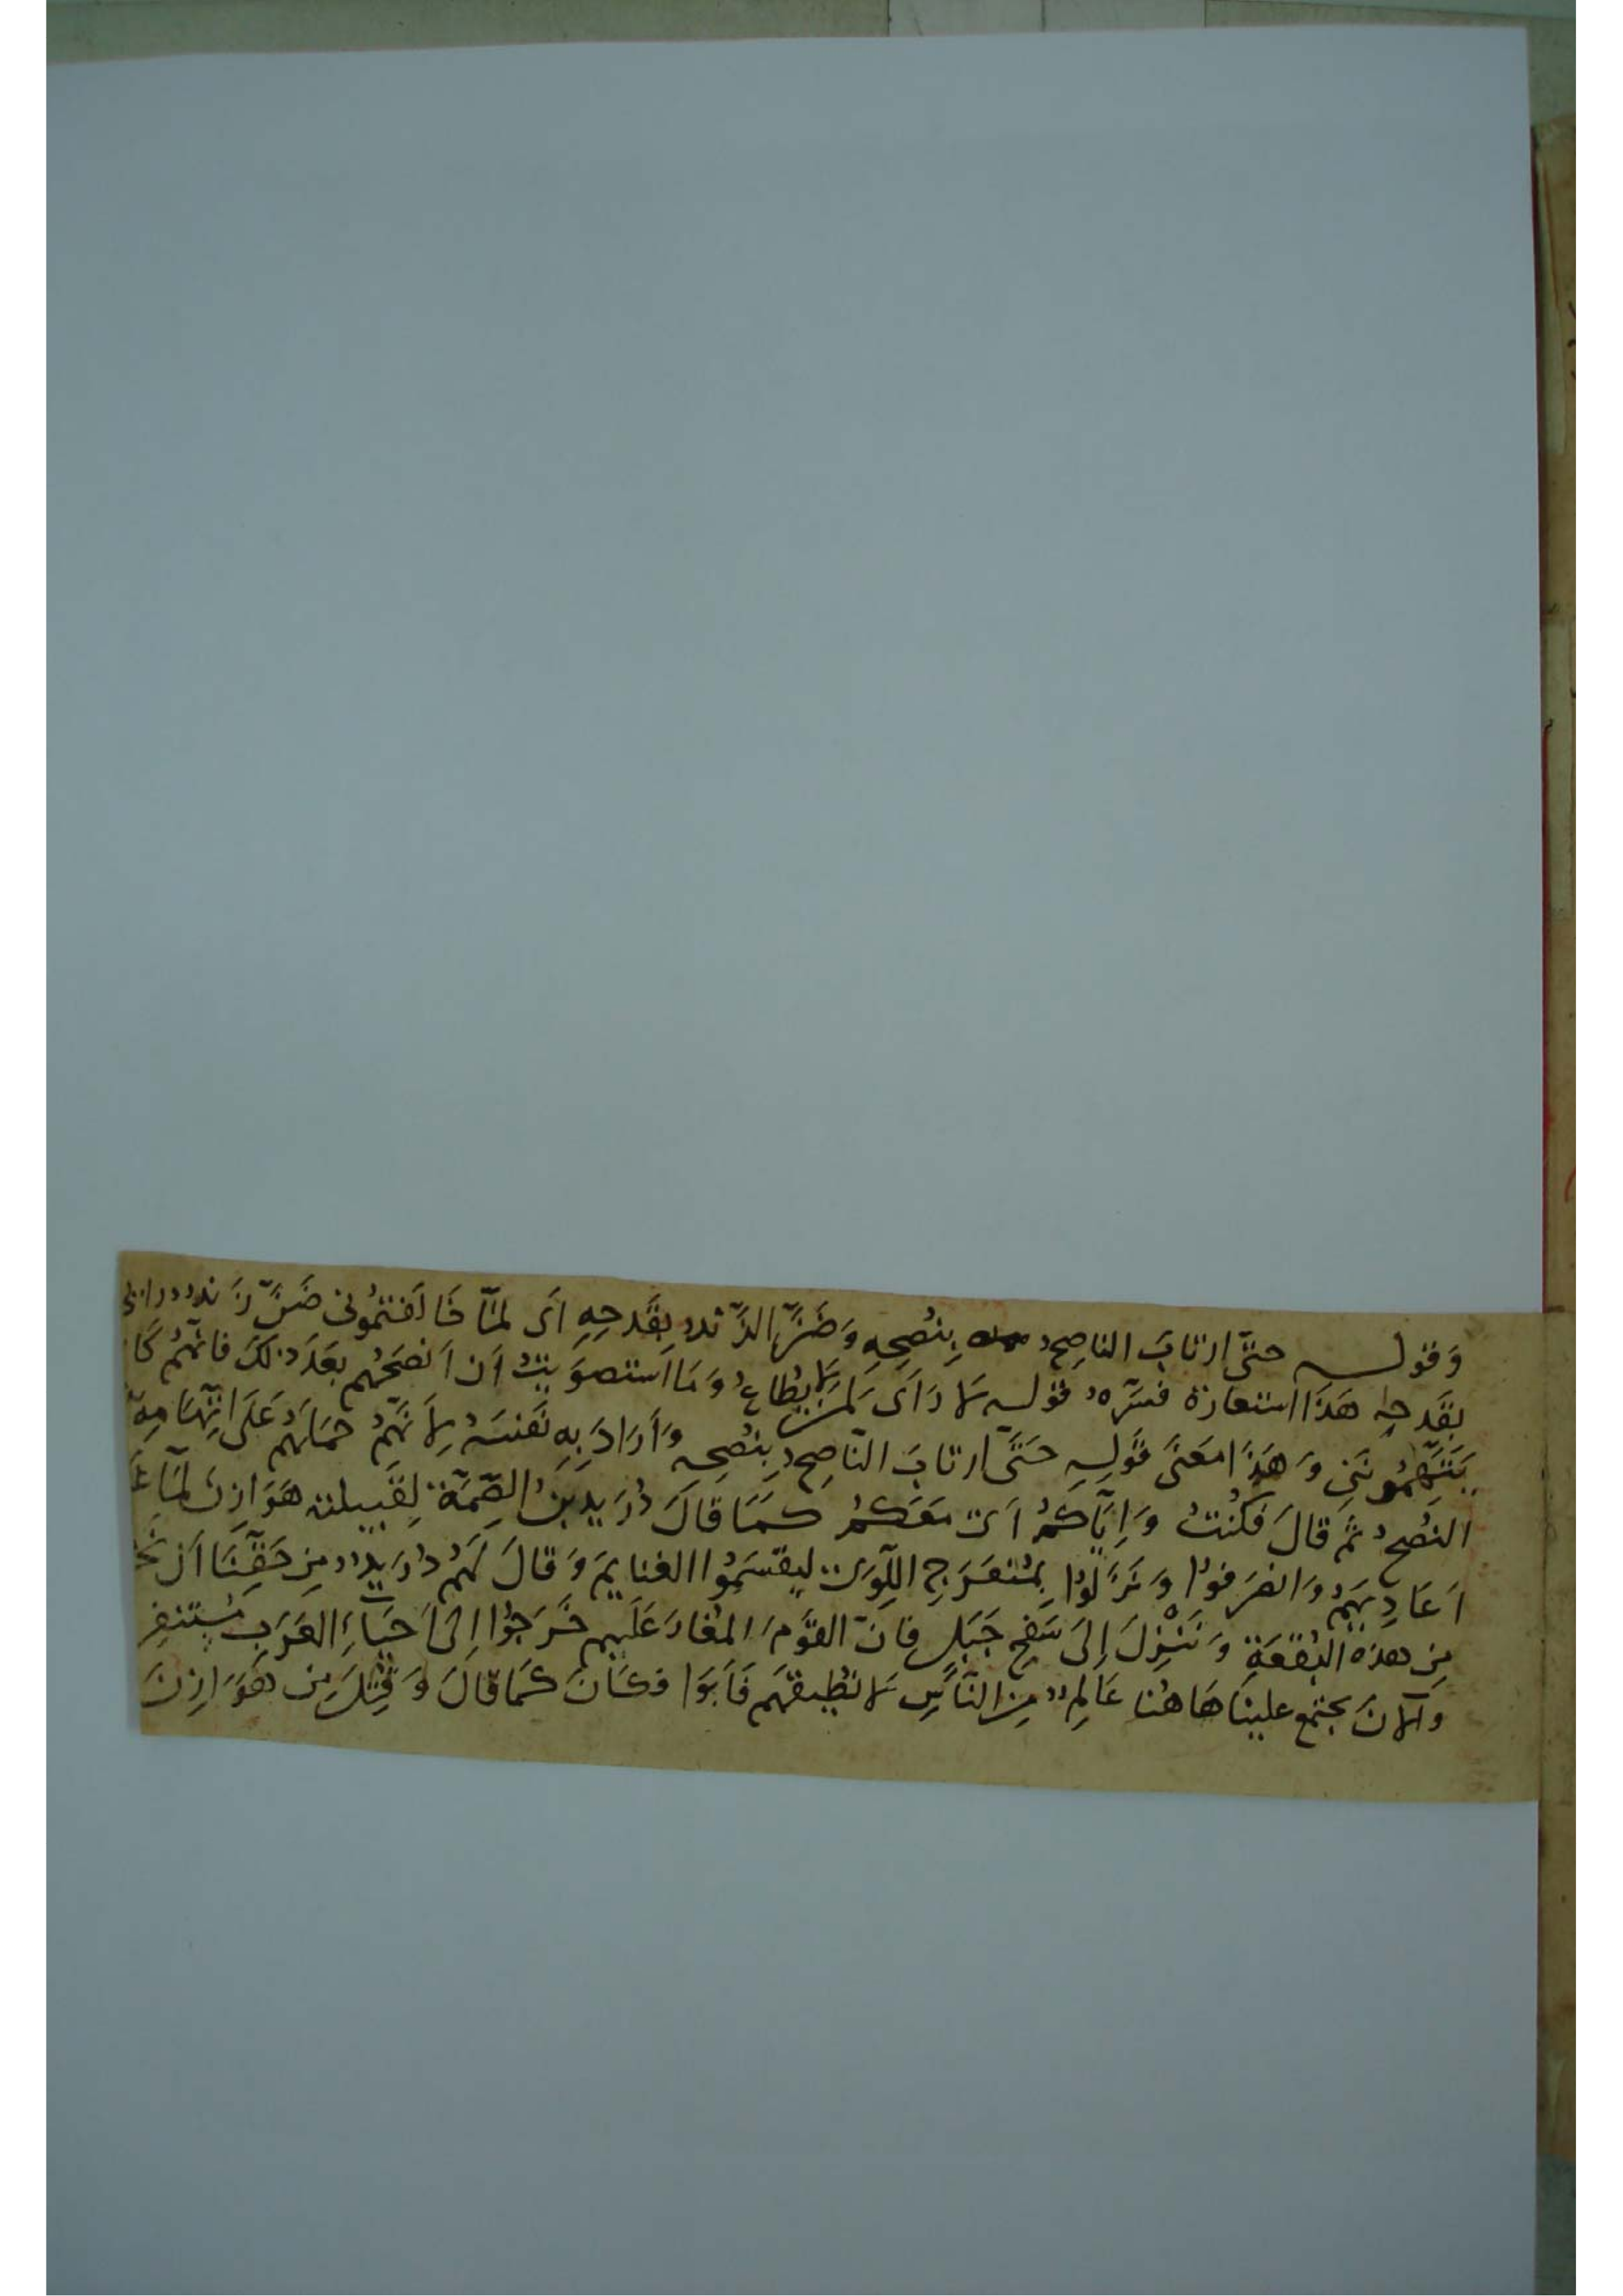 وَقوله حتَّى ارتابَ الناصِحُ بِنُصحِهِ وَضَنَّ الزَّندُ بِقَدحِهِ اَى لمّا خَالَفتمُونى ضَنَّ زَندُ
بقَدحِهِ هَذَا استعارَة فسَّرهُ قوله لا رَاىَ لِمَن لا يُطاعُ وَمَا استصوَبتُ اَن اَنصَحَهُم بعَدَ ذلكَ فانّهُم كَا
يَتَّهِمُونَنِى وَهَذا مَعنَى قَولِهِ حَتَّى ارتابَ النّاصِحُ بِنصُحِهِ وَاَرَادَ بِهِ نَفسَهُ لِاَنَّهُم حَمَلَهُم عَلَى اتِّهَامِهِ
النُصحُ ثُمَّ قالَ فَكُنتُ وَاِيَّاكمُ اَى مَعَكمُ كَمَا قالَ دُرَيدُ بنُ الصِّمَّة لِقَبيلته هَوَازِنَ لمَّا
اَعَادِيَهُم وَانصَرفوُا وَنَزَلُوا بِمُنعَرَجِ اللِّوَى ليِقسَمُوا الغنايمَ وَقالَ لَهُم دُرَيدُ مِن حَقِّنَا اَن
مِن هذه البُقعَةِ وَنَنْزِلَ اِلَى سَفحِ جَبَلٍ فانّ القَومَ المُغارَ عَلَيهم خَرَجُوا اِلى اَحيَاءِ العَرَبِ
وَالآنَ يجتمع علينَا هَاهُنا عَالمٌ مِنَ النَّاسِ لا نطُيقهُم فَاَبَوا فكَانَ كَمَا قالَ وَقُتِلَ مِن هَوَازِنَ